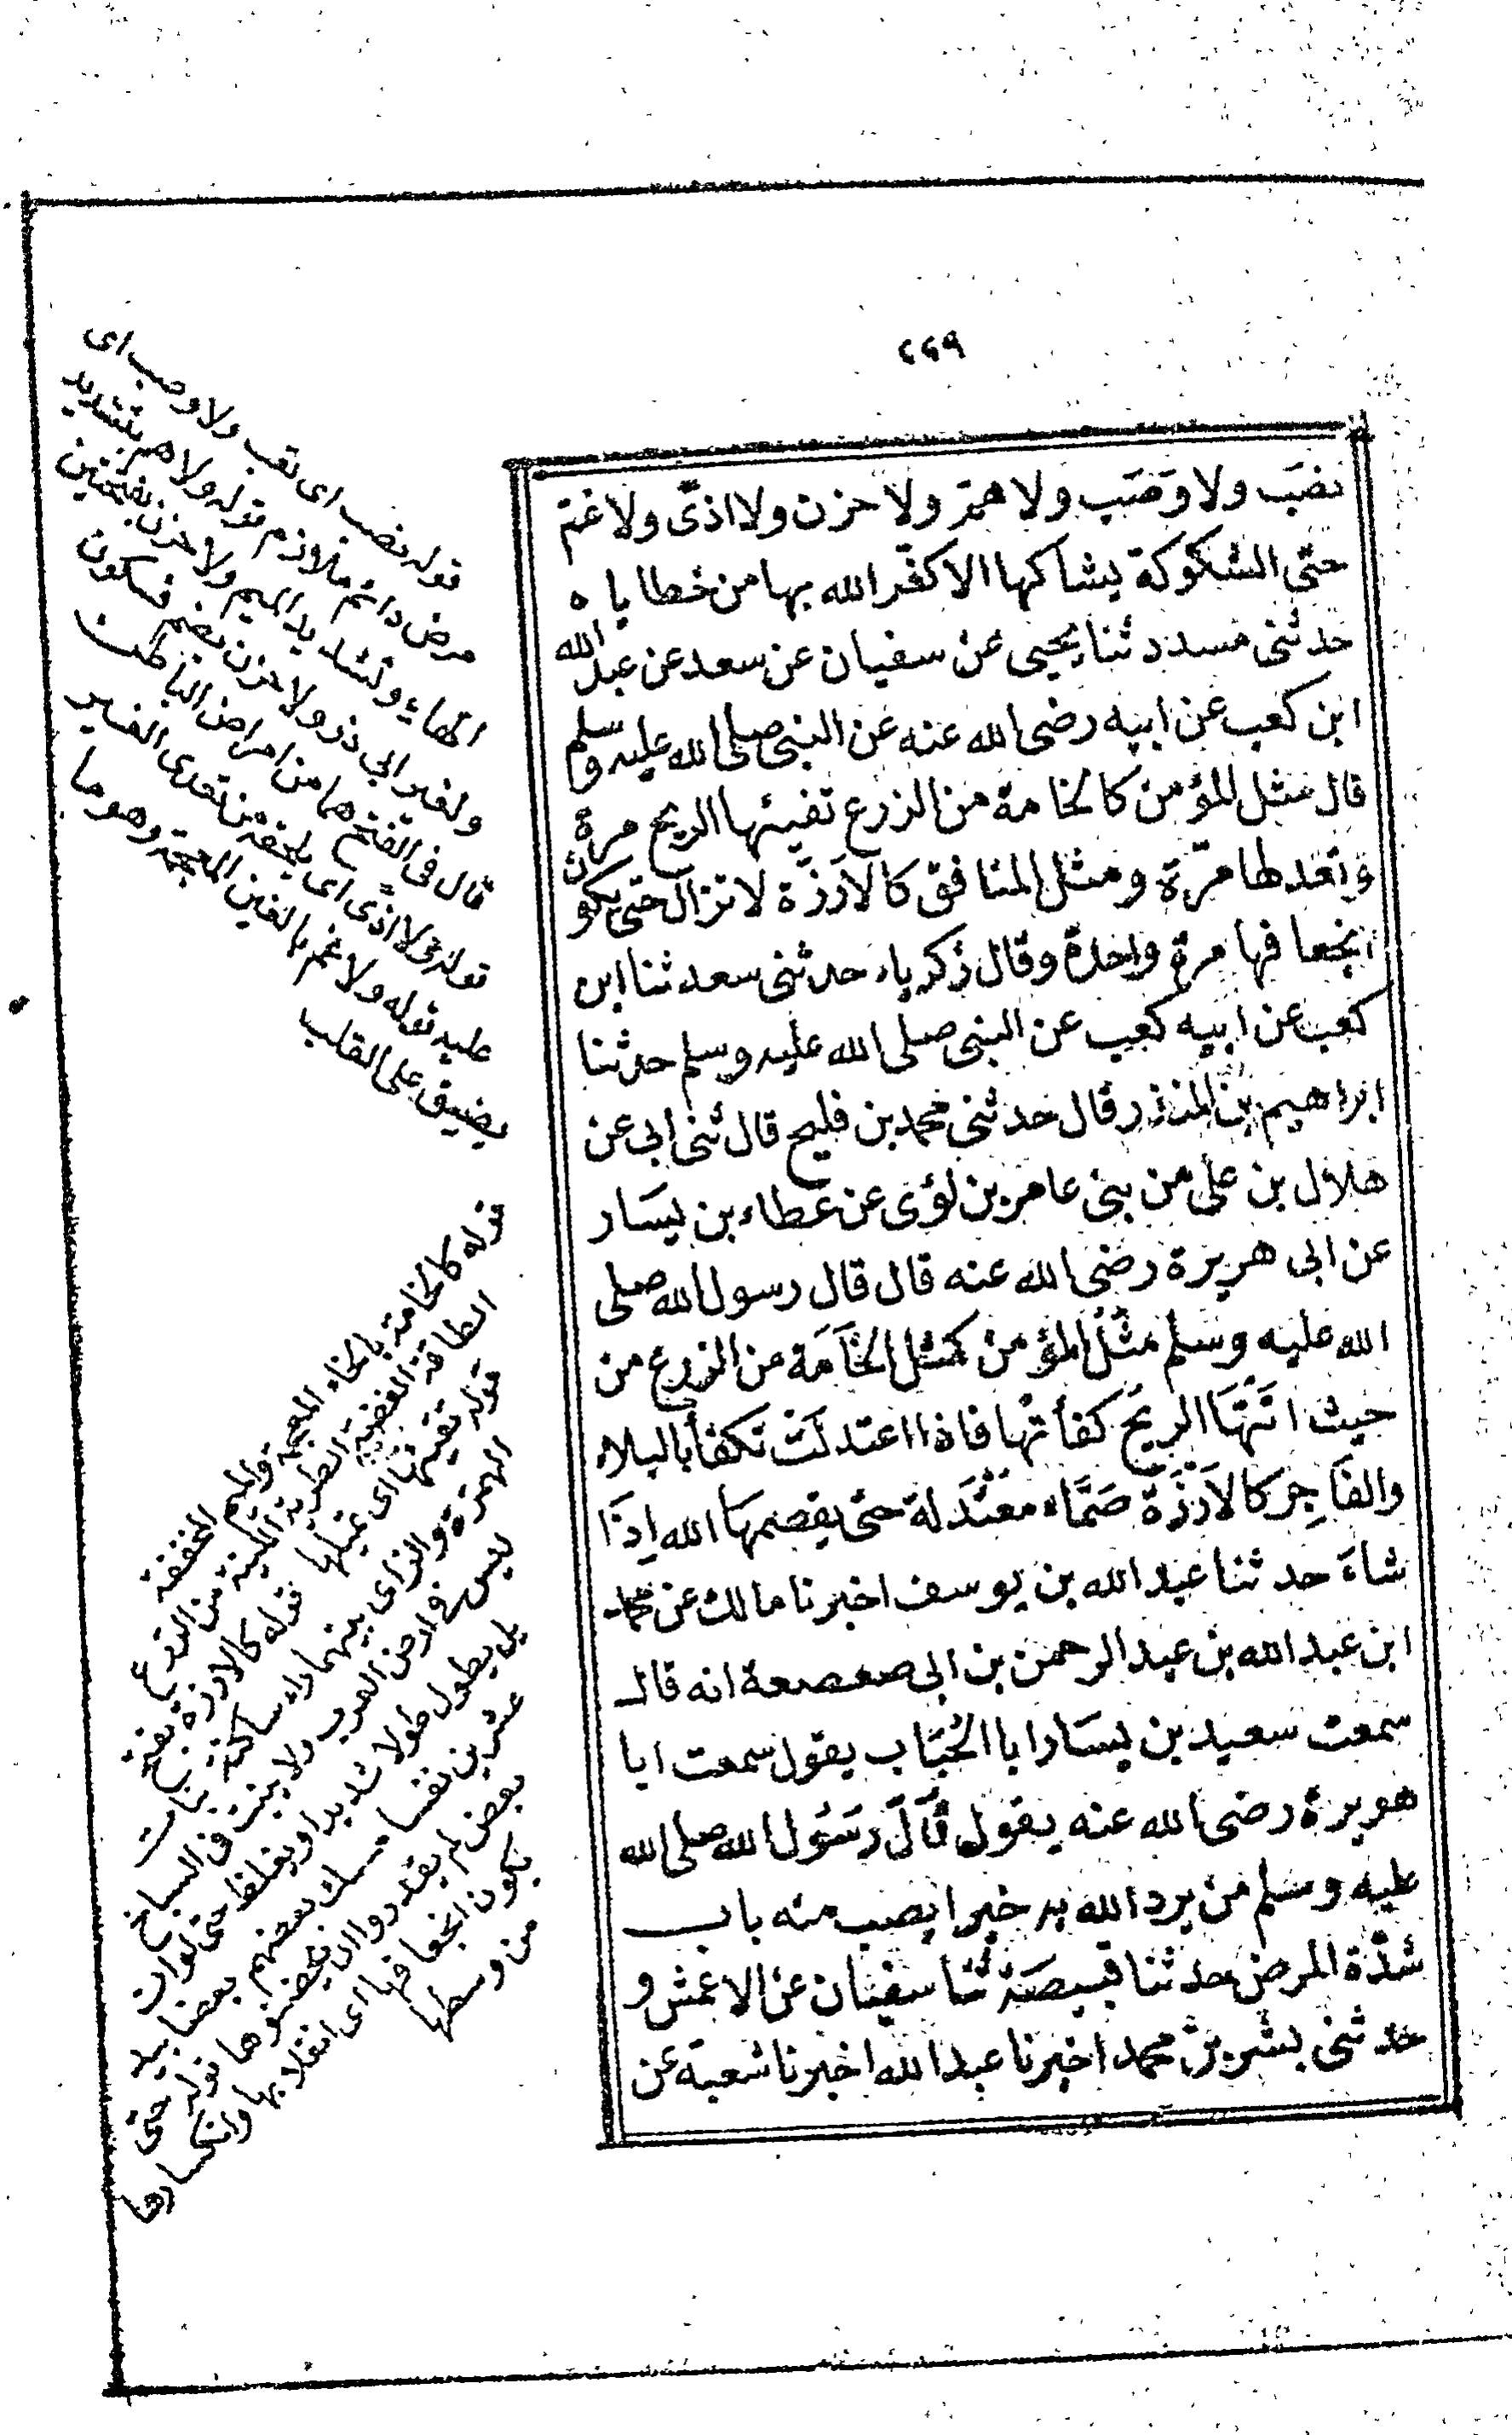 ٢٤٩
نصَب ولا وَصَب ولا همّ ولا حزن ولا اذًى ولا غمّ
حتى الشوكة يشاكها الا كفّر الله بها من خطاياه
حدثنى مسدد ثنا يحيى عن سفيان عن سعد عن عبد الله
ابن كعب عن ابيه رضى الله عنه عن النبى صلى الله عليه وسلم
قال مثل المؤمن كالخامة من الزرع تفيئها الريح مرة
وتعدلها مرّة ومثل المنافق كالاَرزَة لا تزال حتى يكون
انجعافها مرة واحدة وقال زكرياء حدثنى سعد ثنا ابن
كعب عن ابيه كعب عن النبى صلى الله عليه وسلم حدثنا
ابراهيم بن المنذر قال حدثنى محمد بن فليح قال ثنى ابى عن
هلال بن على من بنى عامر بن لؤى عن عطاء بن يسَار
عن ابى هريرة رضى الله عنه قال قال رسول الله صلى
الله عليه وسلم مثَل المؤمن كمثل الخَامَة من الزرع من
حيث اتَتْهَا الريح كفأتْها فاذا اعتدلَتْ تكفأ بالبلاء
والفَاجِر كالاَرْزَة صَمَّاء معْتَدلة حتى يقصمهَا الله اِذَا
شاءَ حدثنا عبد الله بن يوسف اخبرنا مالك عن محمد
ابن عبد الله بن عبد الرحمن بن ابى صعصعة انه قال
سمعت سعيد بن يسَار ابا الحُبَاب يقول سمعت ابا
هريرة رضى الله عنه يقول قَالَ رَسُول الله صلى الله
عليه وسلم من يرد الله به خيرا يصب منه باب
شدّة المرض حدثنا قبيصَة ثنا سفيان عن الاعمش و
حدثنى بشر بن محمد اخبرنا عبد الله اخبرنا شعبة عن
قوله نصب اى تعب ولا وصب اى
مرض دائم ملازم قوله ولا هم بتشديد
الهاء وتشديد الميم ولا حزن بفتحتين
ولغير ابي ذر ولا حزن بضم فسكون
قال فى الفتح هما من امراض الباطن
قوله ولا اذًى اى يلحقه من تعدى الغير
عليه قوله ولا غم بالغين المعجمة وهو ما
يضيق على القلب
قوله كالخامة بالخاء المعجمة والميم المخففة
الطاقة الغضة الطرية اللينة من الزرع
قوله تفيئها اى تميلها قوله كالارزة بفتح
الهمزة والزاى بينهما راء ساكنة نبات
ليس فى ارض العرب ولا ينبت فى السباخ
بل يطول طولا شديدا ويغلظ حتى لو ان
عشرين نفسا مسك بعضهم بعضا بيد
بعض لم يقدروا ان يحضنوها قوله حتى
يكون انجعافها اى انقلابها وانكسارها
من وسطها